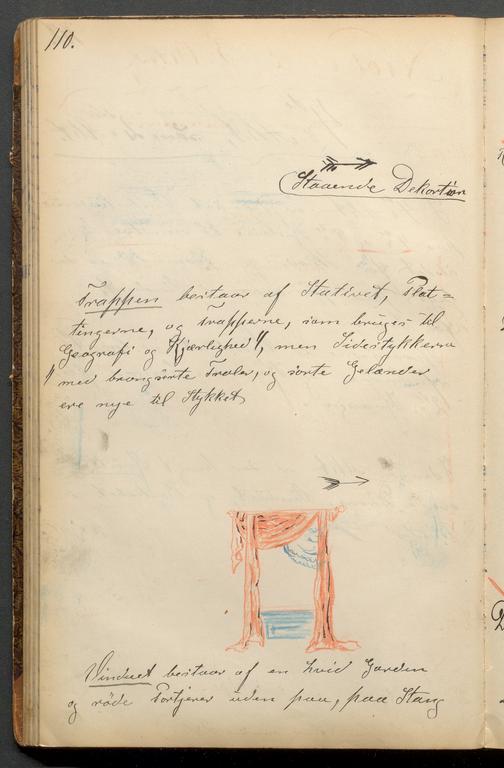 110.
Staaende Dekortion
Trappen bestaar af Stativet, Plat=
tingerne, og Trapperne, som bruges til
Geografi og Kjærlighed", men Sidestykkerne
" med bronçirte Traler, og sorte Gelænder
ere nye til Stykket
Vinduet bestaar af en hvid Gardin
og röde Portjerer uden paa, paa Stang